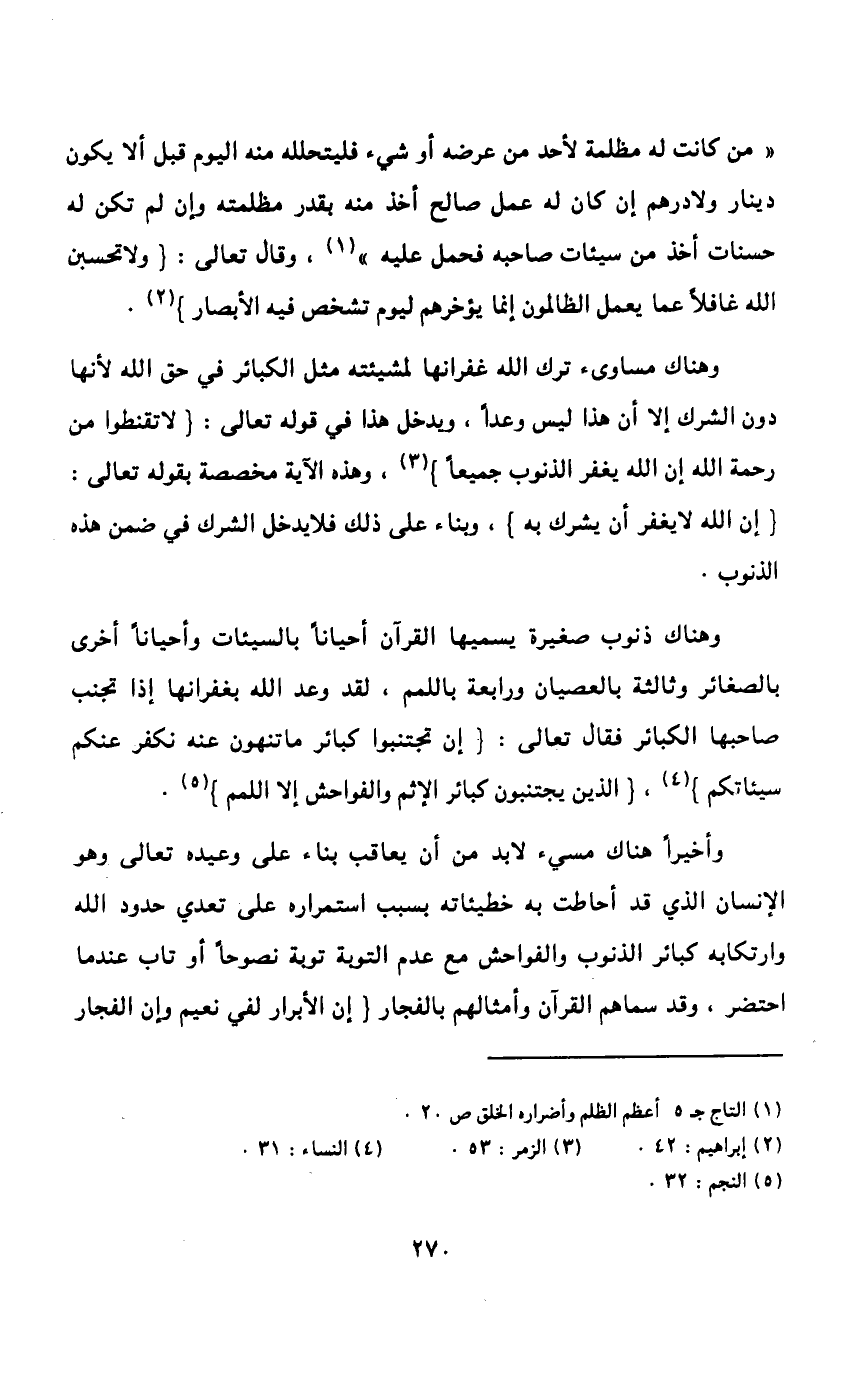 « من كانت له مظلمة لأحد من عرضه أو شيء فليتحلله منه اليوم قبل ألا يكون
دينار ولادرهم إن كان له عمل صالح أخذ منه بقدر مظلمته وإن لم تكن له
حسنات أخذ من سيئات صاحبه فحمل عليه »(١) ، وقال تعالى : { ولاتحسبن
الله غافلاً عما يعمل الظالمون إنما يؤخرهم ليوم تشخص فيه الأبصار }(٢) .
وهناك مساوىء ترك الله غفرانها لمشيئته مثل الكبائر في حق الله لأنها
دون الشرك إلا أن هذا ليس وعداً ، ويدخل هذا في قوله تعالى : { لاتقنطوا من
رحمة الله إن الله يغفر الذنوب جميعاً }(٣) ، وهذه الآية مخصصة بقوله تعالى :
{ إن الله لايغفر أن يشرك به } ، وبناء على ذلك فلايدخل الشرك في ضمن هذه
الذنوب .
وهناك ذنوب صغيرة يسميها القرآن أحياناً بالسيئات وأحياناً أخرى
بالصغائر وثالثة بالعصيان ورابعة باللمم ، لقد وعد الله بغفرانها إذا تجنب
صاحبها الكبائر فقال تعالى : { إن تجتنبوا كبائر ماتنهون عنه نكفر عنكم
سيئاتكم }(٤) ، { الذين يجتنبون كبائر الإثم والفواحش إلا اللمم }(٥) .
وأخيراً هناك مسيء لابد من أن يعاقب بناء على وعيده تعالى وهو
الإنسان الذي قد أحاطت به خطيئاته بسبب استمراره على تعدي حدود الله
وارتكابه كبائر الذنوب والفواحش مع عدم التوبة توبة نصوحاً أو تاب عندما
احتضر ، وقد سماهم القرآن وأمثالهم بالفجار { إن الأبرار لفي نعيم وإن الفجار
(١) التاج جـ ٥ أعظم الظلم وأضراره الخلق ص ٢٠ .
(٢) إبراهيم : ٤٢ . (٣) الزمر : ٥٣ . (٤) النساء : ٣١ .
(٥) النجم : ٣٢ .
٢٧٠